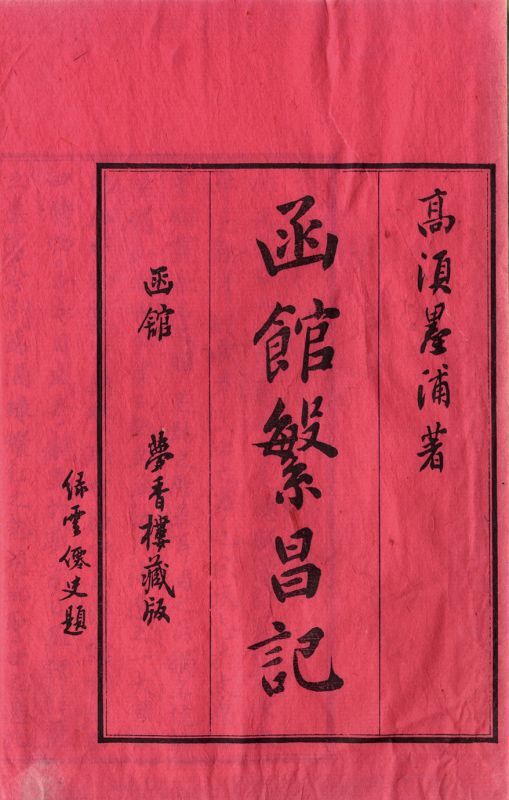 高須墨浦著
函館繁昌記
函館　夢香樓藏版
緑雲僊史題